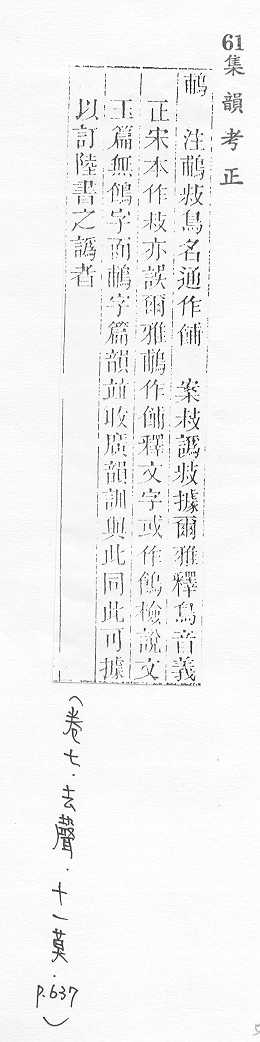 61集韻考正
鵏 注鵏敊鳥名通作餔 案敊譌敊據爾雅釋鳥音義
正宋本作敊亦誤爾雅鵏作餔釋文字或作檢說文
玉篇無字而鵏字篇韻並收廣韻訓與此同此可據
以訂陸書之譌者
(卷七.去聲.十一莫.p.637)